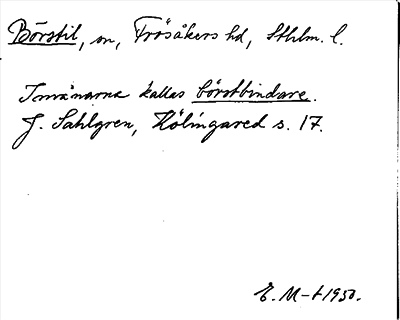 Börstil, sn, Frösåkers hd, Sthlm. l.
Invånarna kallas börstbindare.
J. Sahlgren, Hölingared s. 17.
E. M-t 1950.